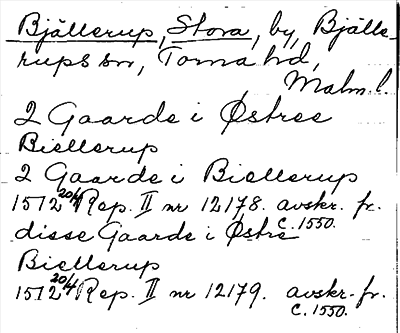 Bjällerup, Stora, by, Bjälle-
rups sn, Torna hd,
Malm. l.
2 Gaarde i Østree
Biellerup
2 Gaarde i Biellerup
1512 20/4 Rep. II nr 12178. avskr. fr. c. 1550.
disse Gaarde i Østre
Biellerup
1512 20/4 Rep. II nr 12179. avskr. fr. c. 1550.